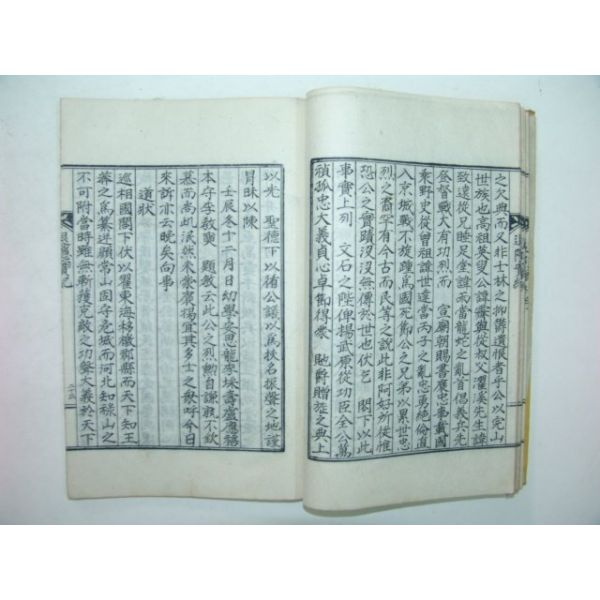 之父典而又非士林之抑鬱遺恨者乎公以完山
世族也高祖英叟公諱齊與從叔父濯溪先生諱
致遠從兄睡足堂諱雨當龍蛇之亂首倡義兵先
登督戰大有功烈而 宣廟朝賜書應忠事載國
乘野史從曾祖諱世遠當丙子之亂忠勇絕倫直
入京城戰不旋踵爲國死節公之兄弟以累世忠
烈之裔罕有今古而民等之說此非阿好所從惟
恐公之實蹟沒沒無傳於世也伏乞 閤下以此
事實上列 文石之陛俾揚武原從功臣全公萬
禎孤忠大義貞心卓節得蒙 貤爵贈㫌之典上
以光 聖德下以循公議以爲扶名振聲之地謹
冒昧以陳
壬辰冬十二月日幼學安思龍李垛壽盧應禧
本守李教奭 題教云此公之烈勳自謙救不欽
慕而高此泯然未蒙褒揚宜其多士之 呼今日
來訴亦云晩矣向事
道狀
巡相國閤下伏以瞿東海移檄郡縣而天下知王
莽之爲篡逆顔常山固守危城而河北知祿山之
不可附當時雖無斬獲克敵之功聲大義於天下